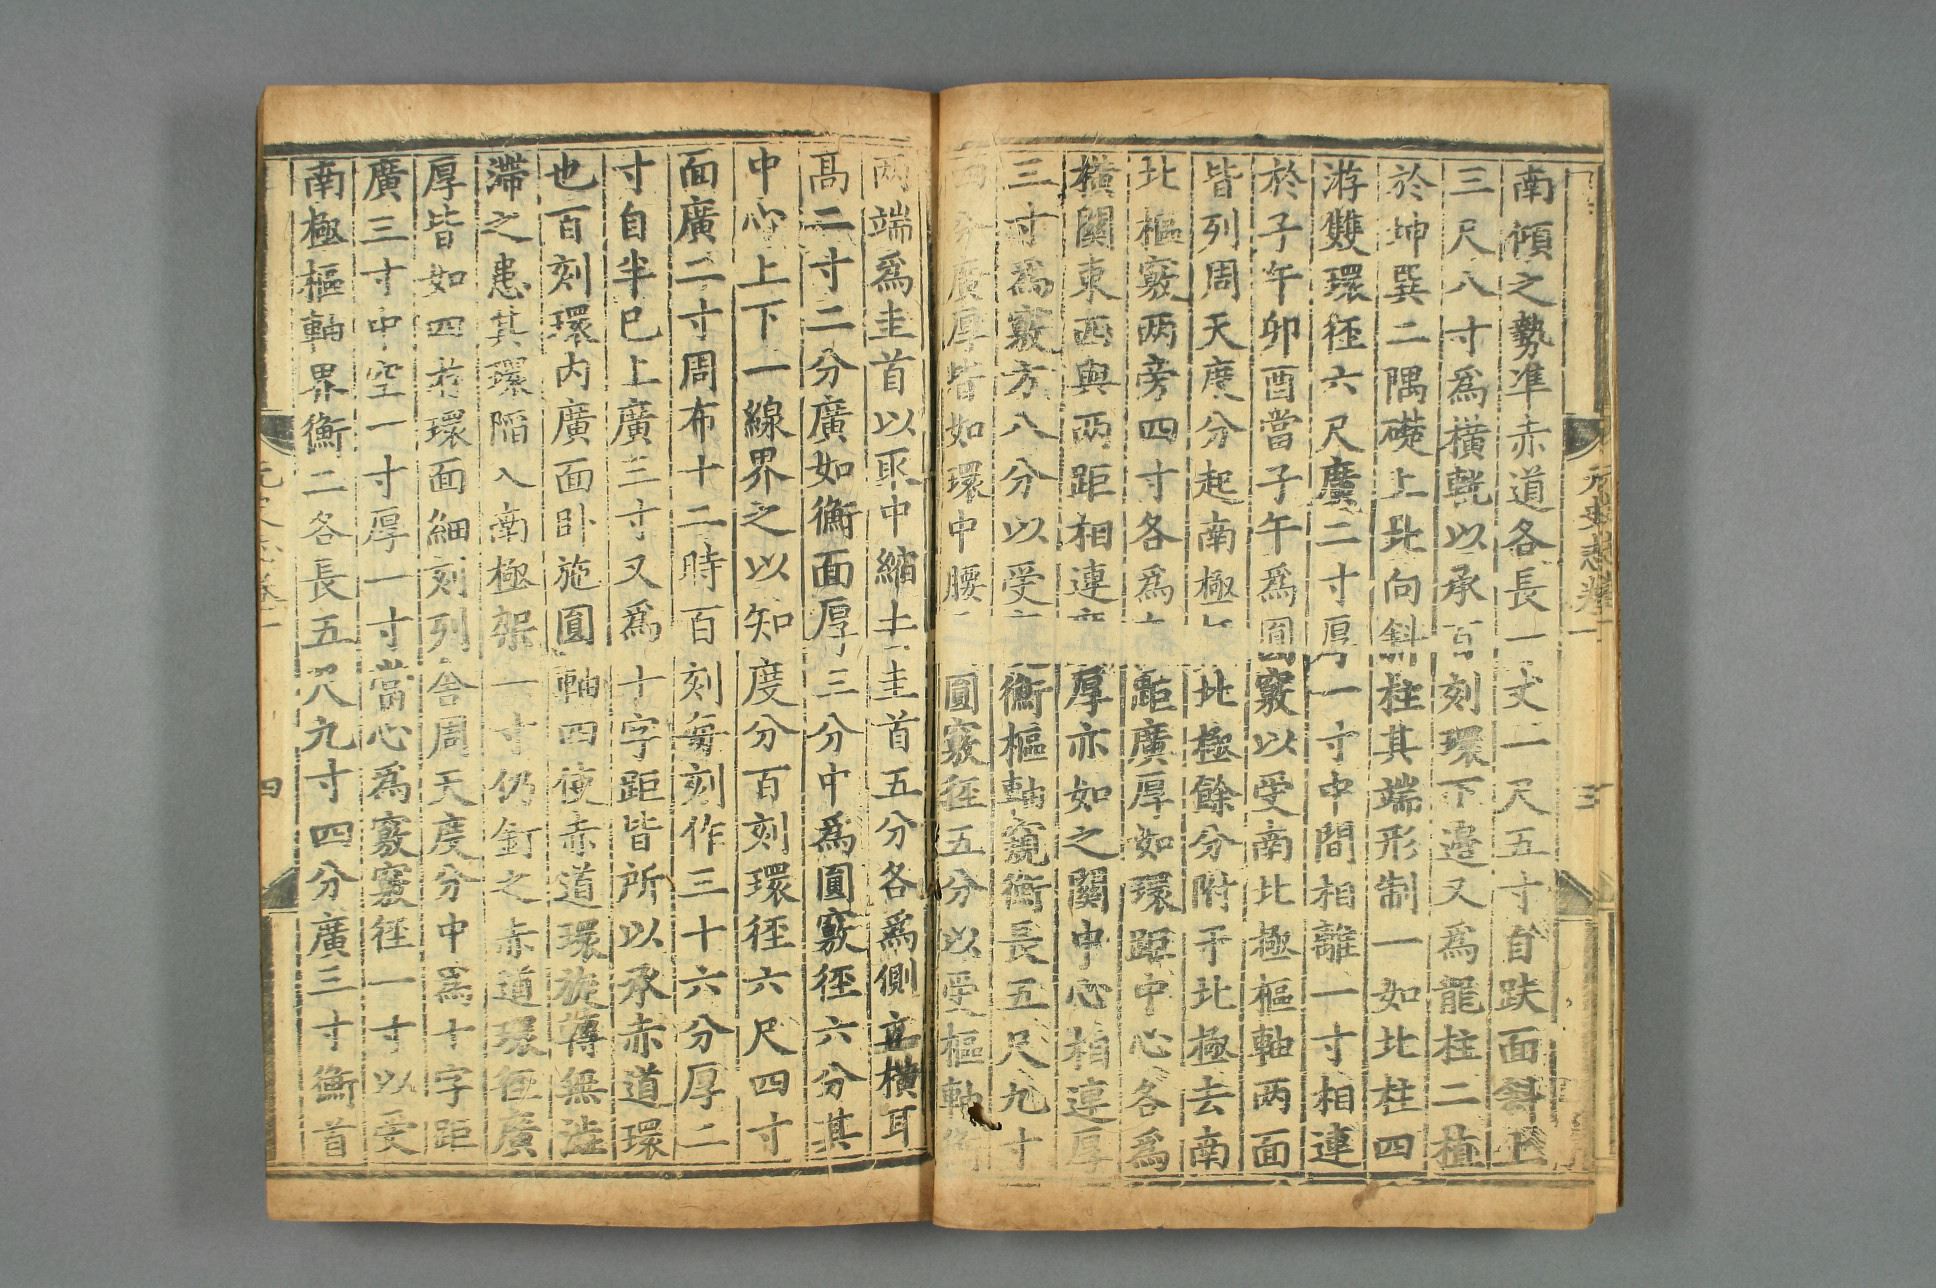 南傾之勢準赤道各長一丈二尺五寸自趺面斜上
三尺八寸爲橫輄以承百刻環下邊又爲龍柱二植
於坤巽二隅礎上北向斜柱其端形制一如北柱四
游雙環徑六尺廣二寸厚一寸中間相離一寸相連
於子午卯酉當子午爲圓竅以受南北極樞軸兩面
皆列周天度分起南極北極餘分附于北極去南
北樞竅兩旁四寸各爲距廣厚如環距中心各爲
橫關東西與兩距相連廣厚亦如之關中心相連厚
三寸爲竅方八分以受衡樞軸窺衡長五尺九寸
四分廣厚皆如環中腰圓竅徑五分以受樞軸衡
兩端爲圭首以取中縮去圭首五分各爲側立橫耳
高二寸二分廣如衡面厚三分中爲圓竅徑六分其
中心上下一線界之以知度分百刻環徑六尺四寸
面廣二寸周布十二時百刻每刻作三十六分厚二
寸自半巳上廣三寸又爲十字距皆所以承赤道環
也百刻環內廣面卧施圓軸四使赤道環旋轉無澁
滯之患其環陷入南極架一寸仍釘之赤道環徑廣
厚皆如四游環面細刻列舍周天度分中爲十字距
廣三寸中空一寸厚一寸當心爲竅竅徑一寸以受
南極樞軸界衡二各長五尺九寸四分廣三寸衡首
元史志卷一
三
四